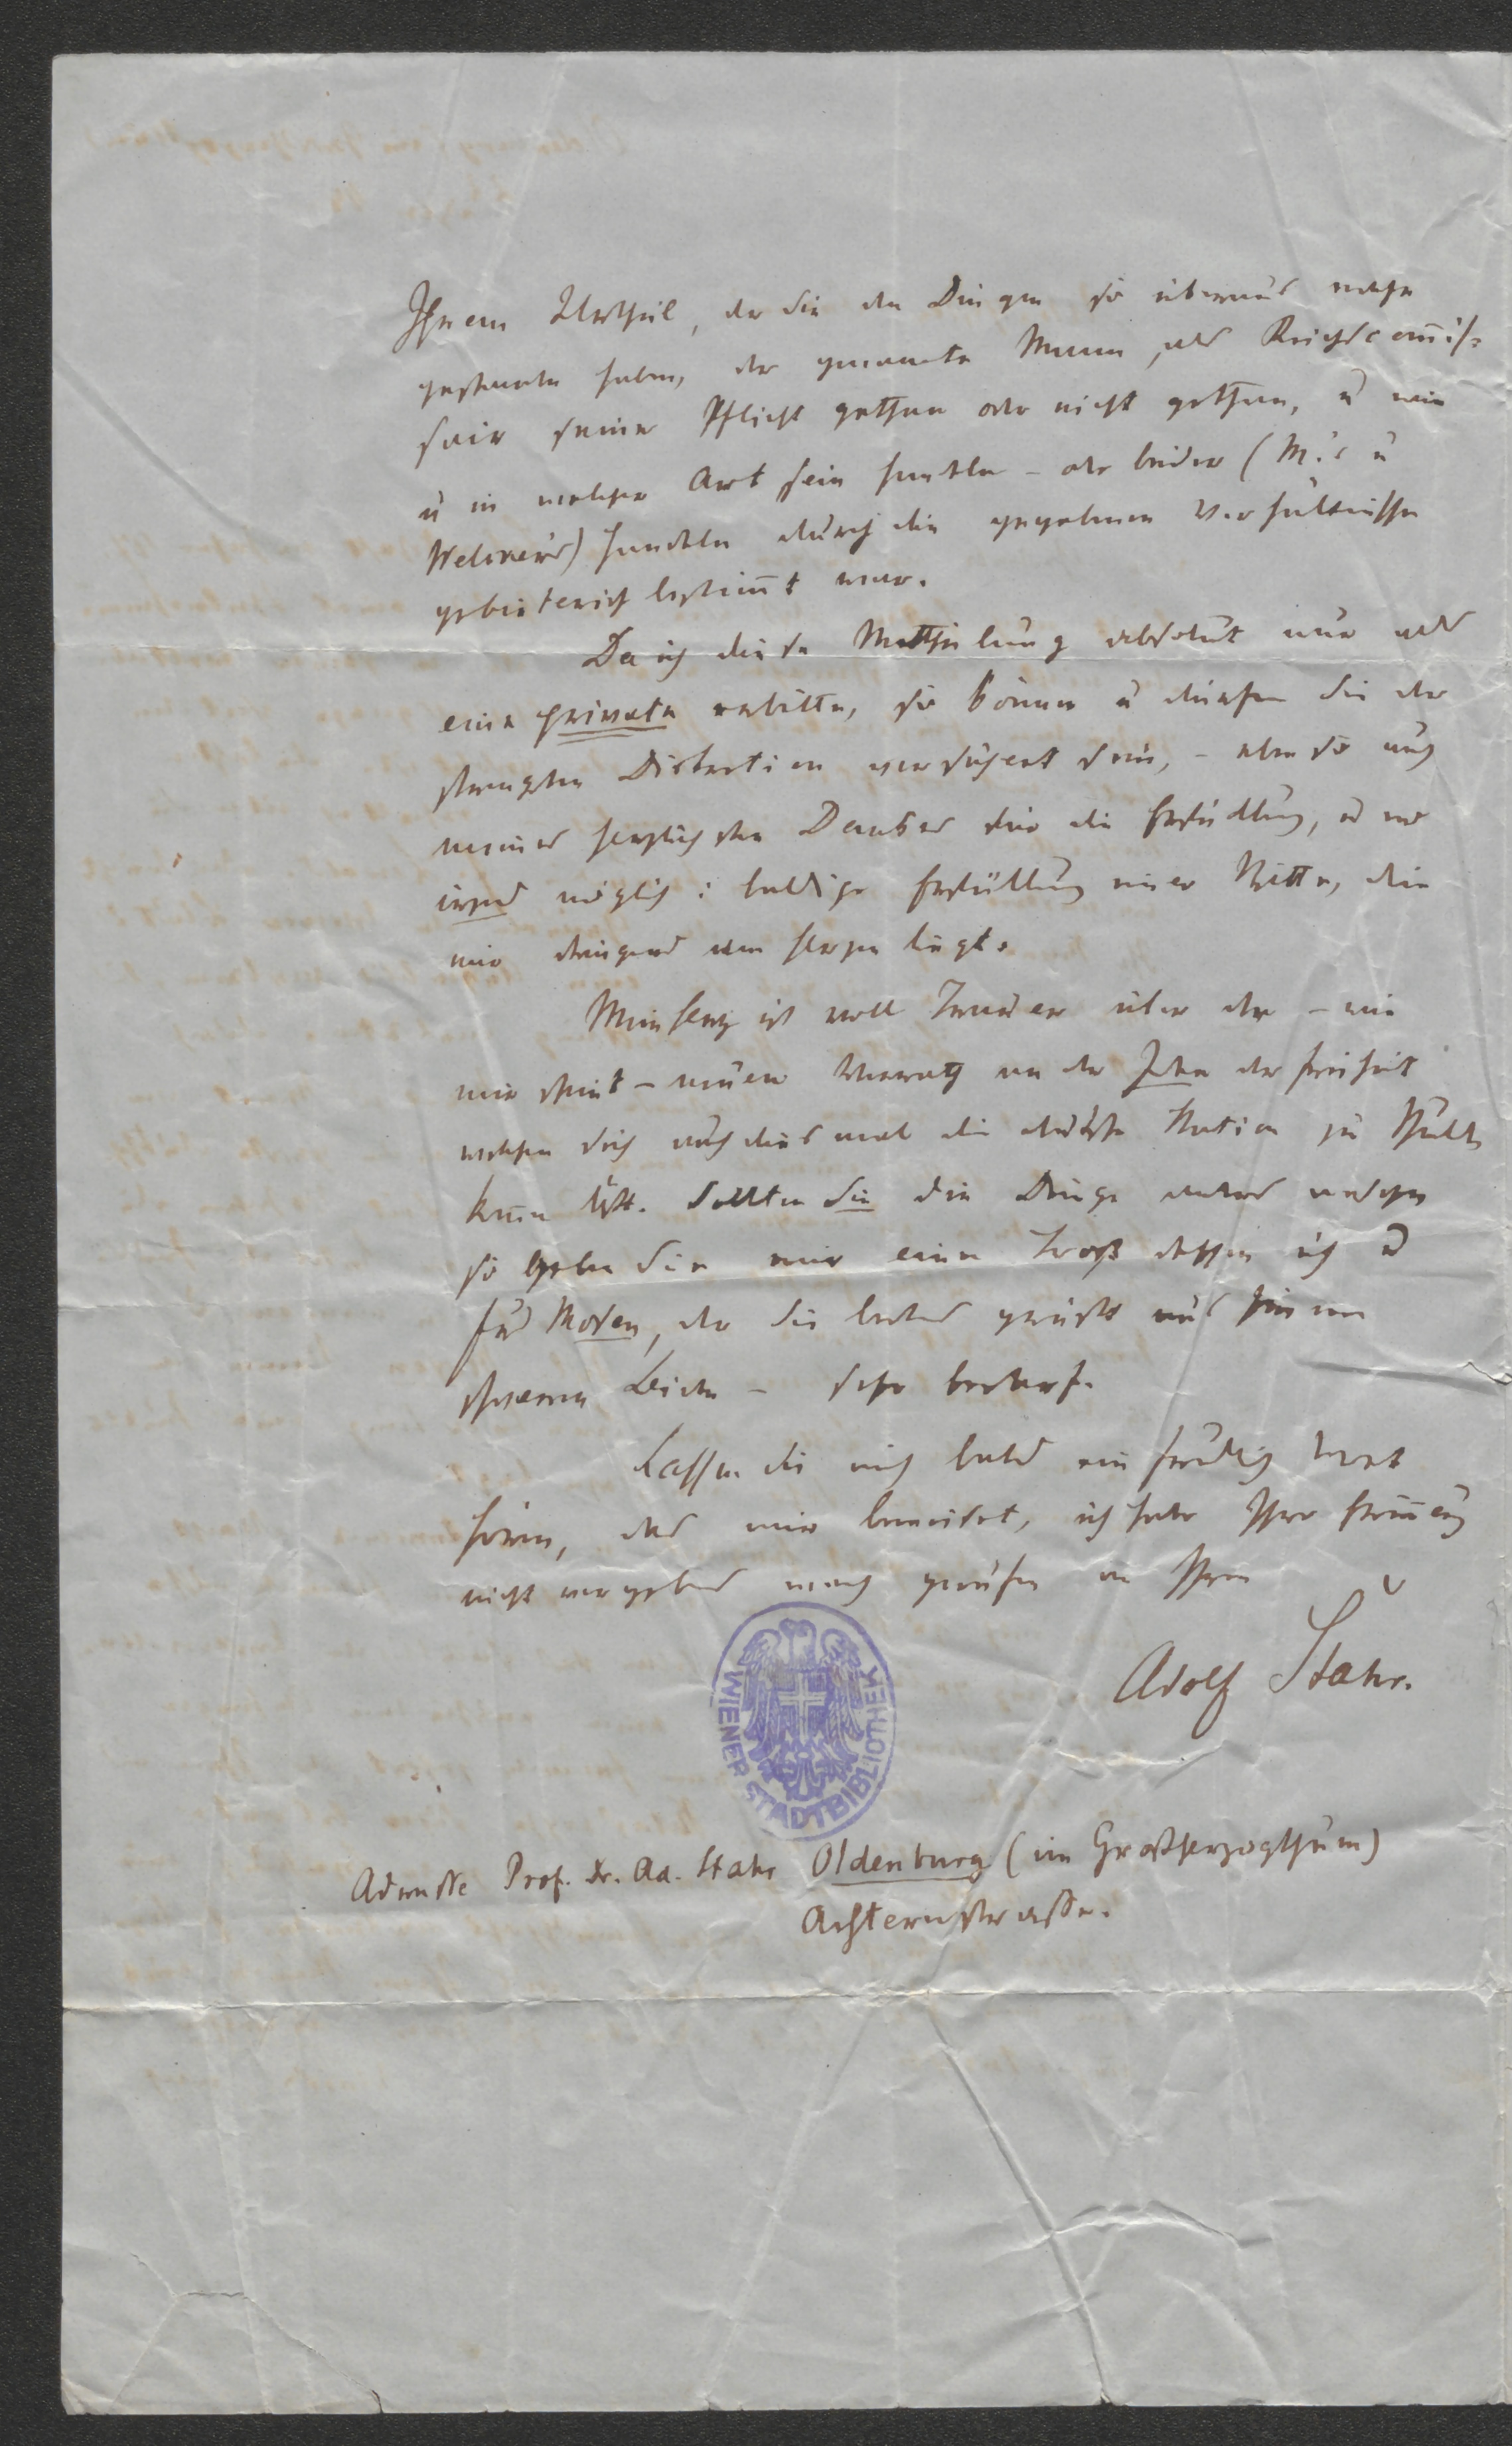 Ihrem Urtheil, da Sie den Dingen so überaus nahe
gestanden haben, der genannte Mann, als Reichscom̄iſ-
sair seine Pflicht gethan oder nicht gethan, u wie
u in welcher Art sein Handeln – oder beider (M.'s u
Welcker's) Handeln durch die gegebenen Verhältnisse
gebieterisch bestim̄t war.
Da ich diese Mittheilung absolut nur als
eine private erbitte, so können u dürfen Sie der
strengsten Diskretion versichert sein, – eben so auch
meines herzlichsten Dankes für die Erfüllung, u wo
irgend möglich: baldige Erfüllung einer Bitte, die
mir dringend am Herzen liegt.
Mein Herz ist voll Trauer über den – wie
mir scheint – neuen Verrath an der Idee der Freiheit
welchen sich auch dies mal die deutsche Nation zu Schulden
kom̄en läßt. Sollten Sie die Dinge anders ansehen
so geben Sie mir einen Trost dessen ich u
für Mosen, der Sie bestens grüßt aus seinem
schweren Leiden – sehr bedarf.
Lassen Sie mich bald ein freundlich Wort
hören, das mir beweiset, ich habe Ihre Erinnerung
nicht vergebens wach gerufen an Ihren
Adolf Stahr.
WIENER STADTBIBLIOTHEK
Adresse Prof. Dr. Ad. Stahr Oldenburg (im Großherzogthum)
Achternstrasse.